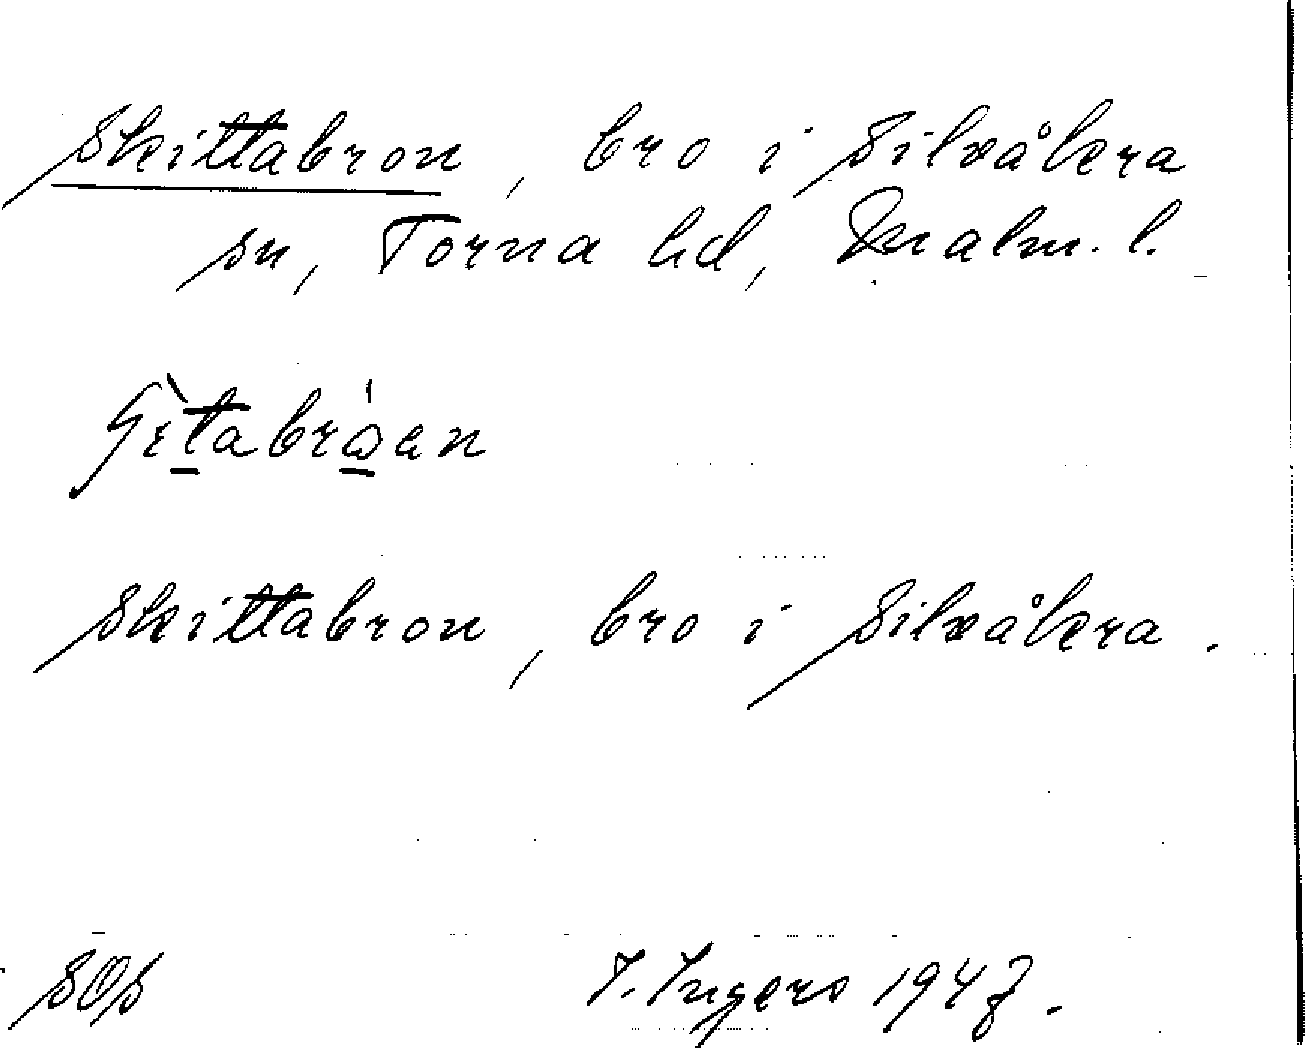 Skittabron, bro i Silvåkra
sn, Torna hd, Malm. l.
Skittabron, bro i Silvåkra.
SOS I. Ingers 1947.